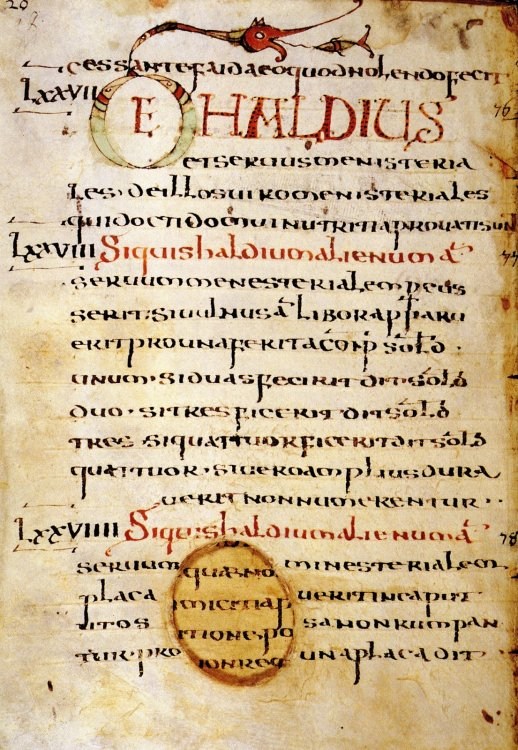 20
cessantefaidaeoquodnolendofecit
LXXVII DE HALDIUS 76
et servius menisteria
les · deillos vero menisteriales
qui docti domui nutriti aprovati sun
LXXVIII Si quis haldium alienum a 77
servum menesterialem
serit · si vulnus a liboraparu
erit pro una ferita conp sold ·
unum · si duas fecirit dit · sold
duo · si tres ficerit dit sold
tres · si quattuor ficerit dit sold
quattuor · si vero amplius dura
verit non numerentur ·
LXXVIIII Si quis haldium alienum a 78
servum ministerialem
placa verit in caput
ut os sa non rumpan
tur · pro una placa dit
quæ no
inicitiap
tione · po